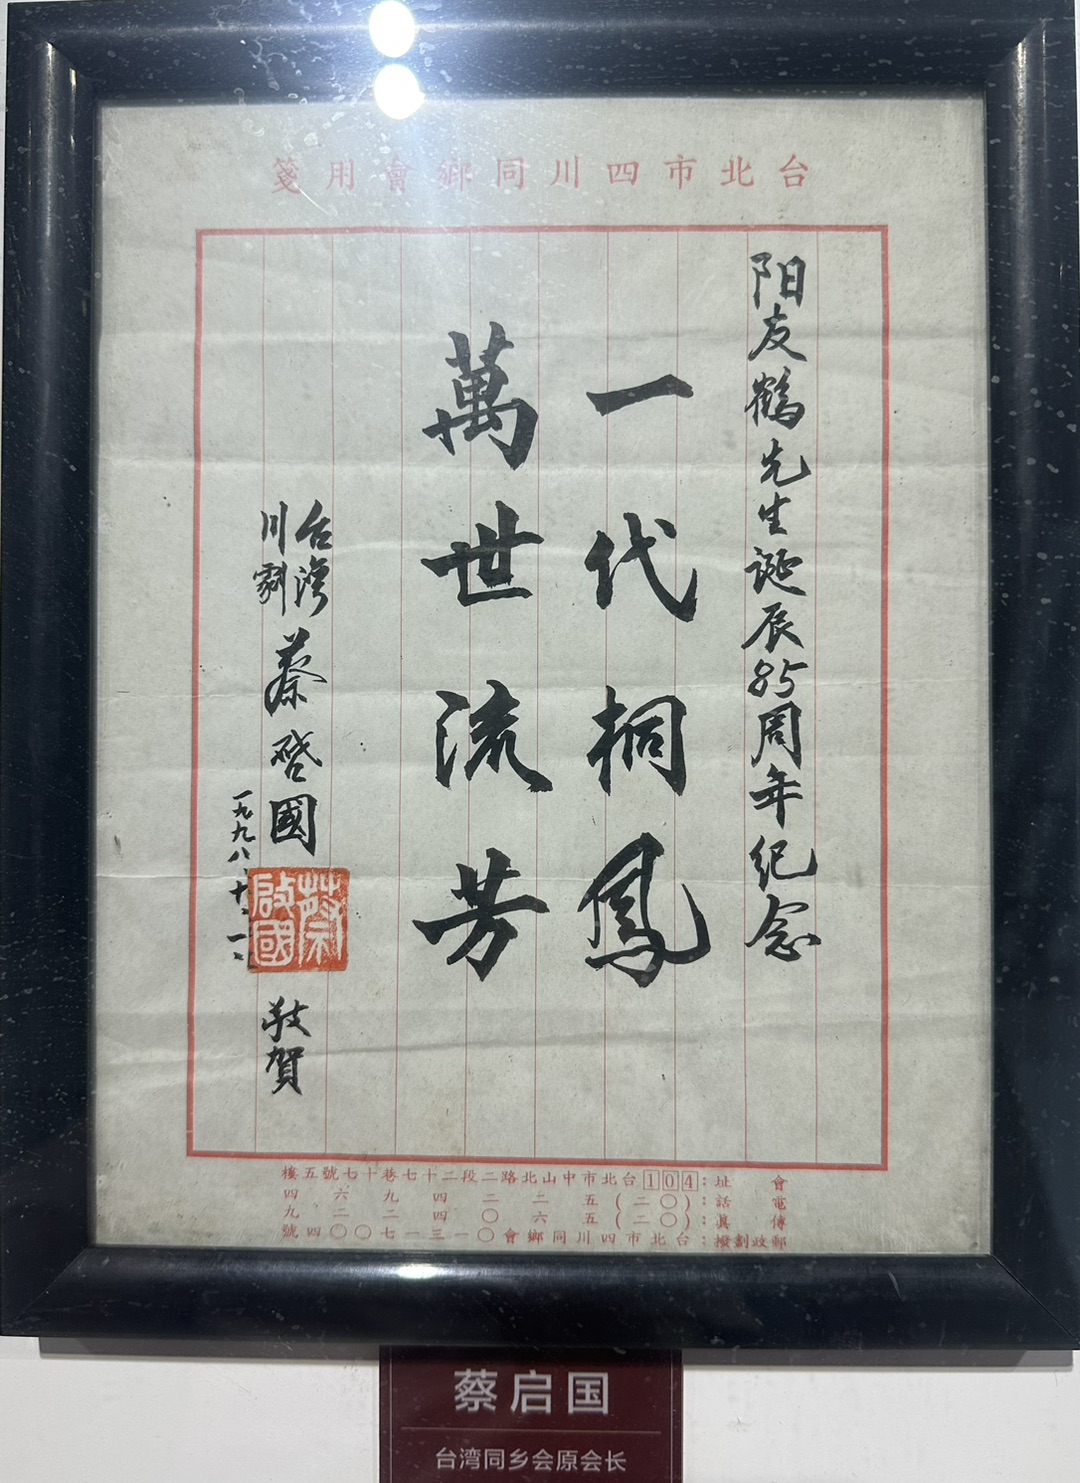 台北市四川同鄉會用箋
阳友鶴先生誕辰85周年纪念
一代桐鳳
萬世流芳
台灣
川劇
蔡啓國
蔡啟國
敬賀
一九九八、十、一、
會址：104台北市中山北路二段二十七巷十七號五樓
電話：(〇二)五二二四九六四
傳眞：(〇二)五六〇四二二九
郵政劃撥：台北市四川同鄉會〇一三一七〇〇四號
蔡启国
台湾同乡会原会长